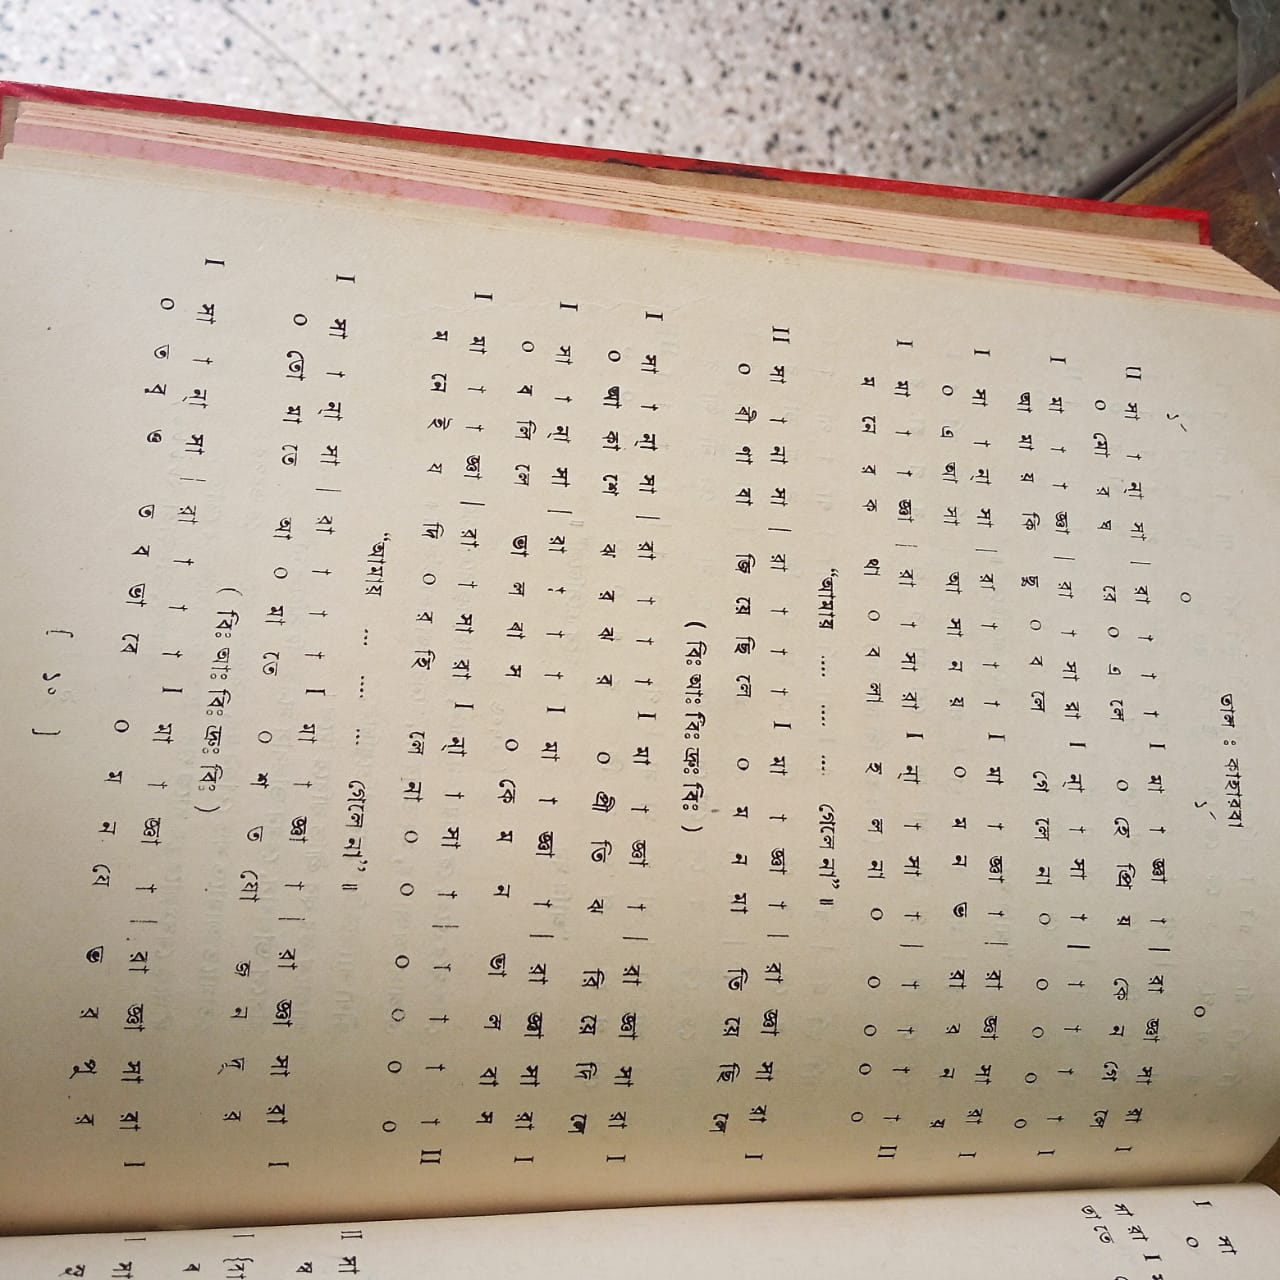 তাল : কাহারবা
১´ ০ ১´ ০
II সা † ন্‌া সা | রা † † † I মা † জ্ঞা † | রা জ্ঞা সা রা I
০ মো র ঘ রে ০ এ লে ০ হে প্রি য় কে ন গে লে
I মা † † জ্ঞা | রা † সা রা I ন্‌া † সা † | † † † † I
আ মা য় কি ছু ০ ব লে গে লে না ০ ০ ০ ০ ০
I সা † ন্‌া সা | রা † † † I মা † জ্ঞা † | রা জ্ঞা সা রা I
০ এ আ সা আ সা ন য় ০ ম ন ভ রা ব ন য়
I মা † † জ্ঞা | রা † সা রা I ন্‌া † সা † | † † † † II
ম নে র ক থা ০ ব লা হ ল না ০ ০ ০ ০ ০
“আমায় .... .... .... গেলে না” ॥
II সা † না সা | রা † † † I মা † জ্ঞা † | রা জ্ঞা সা রা I
০ বী থা বা জি য়ে ছি লে ০ ম ন মা তি য়ে ছি লে
( বিঃ আঃ বিঃ ফ্রুঃ বিঃ )
I সা † ন্‌া সা | রা † † † I মা † জ্ঞা † | রা জ্ঞা সা রা I
০ আ কা শে ঝ র ঝ র ০ প্রী তি ঝ রি য়ে দি লে
I সা † ন্‌া সা | রা † † † I মা † জ্ঞা † | রা জ্ঞা সা রা I
০ ব লি লে ভা ল বা স ০ কে ম ন ভা ল বা স
I মা † † জ্ঞা | রা † সা রা I ন্‌া † সা † | † † † † II
ম নে হ য় দি ০ র ছি লে না ০ ০ ০ ০ ০ ০
“আমায় ... .... ... গেলে না” ॥
I সা † ন্‌া সা | রা † † † I মা † জ্ঞা † | রা জ্ঞা সা রা I
০ তো মা তে আ ০ মা তে ০ শ ত যো জ ন দূ র
( বিঃ আঃ বিঃ ফ্রুঃ বিঃ )
I সা † ন্‌া সা | রা † † † I মা † জ্ঞা † | রা জ্ঞা সা রা I
০ ত বু ও ত ব ভা বে ০ ম ন যে ভ র পু র
[ ১০ ]